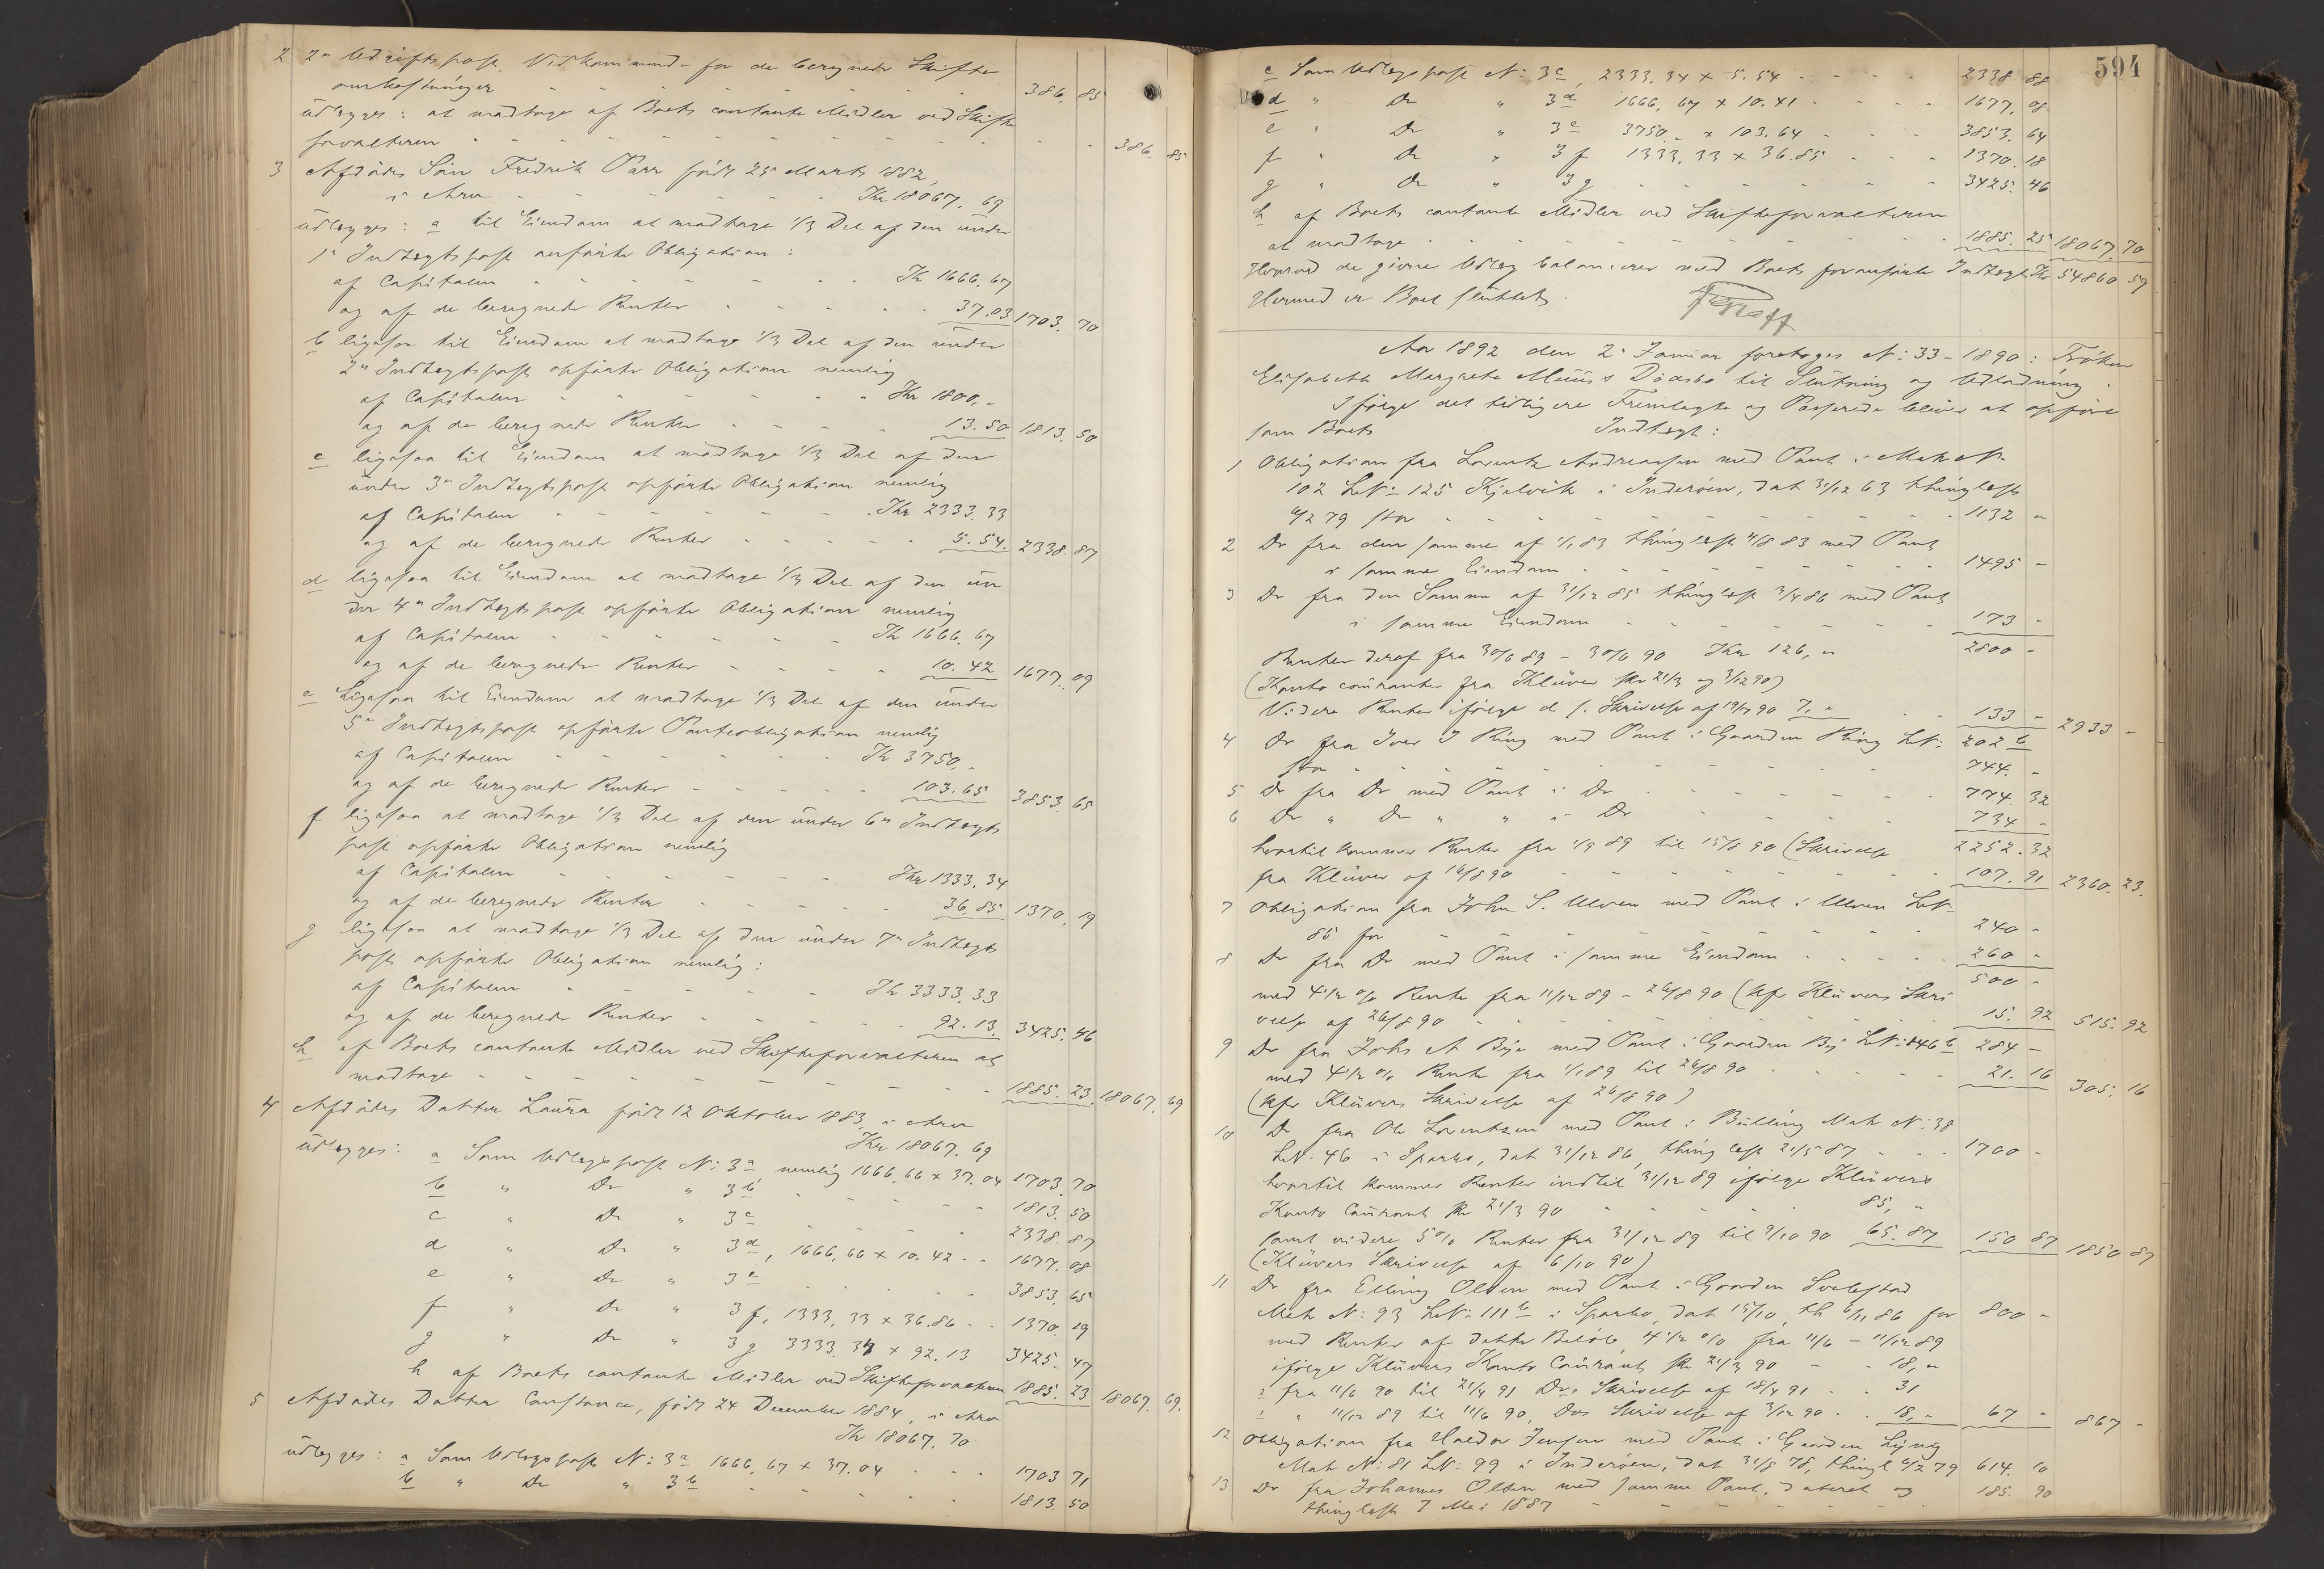 2 2n Udgiftspost, Vedkommende for de beregnede Skifte
omkostninger - - - - - - - 386. 85
udlægges: at modtage af Boets contante Midler ved Skifte
forvalteren - - - - - - - 386. 85
3 Afdødes Søn Fredrik Parr født 25 Marts 1882,
i Arv - - - - - Kr 18067. 69
udlægges: a til Eiendom at modtage 1/3 Del af den under
1n Indtægtspost anførte Obligation:
af Capitalen - - - - - Kr 1666, 67
og af de beregnede Renter - - - - 37.03 1703. 70
b ligesaa til Eiendom at modtage 1/3 Del af den under
2n Indtægtspost opførte Obligation nemlig
af Capitalen - - - - - Kr 1800, -
og af de beregnede Renter - - - - 13.50 1813. 50
c ligesaa til Eiendom at modtage 1/3 Del af den
under 3n Indtægtspost opførte Obligation nemlig
af Capitalen - - - - - Kr 2333. 33
og af de beregnede Renter - - - - 5.54. 2338. 87
d ligesaa til Eiendom at modtage 1/3 Del af den un
der 4n Indtægtspost opførte Obligation nemlig
af Capitalen - - - - - Kr 1666. 67
og af de beregnede Renter - - - - 10. 42 1677. 09
e Ligesaa til Eiendom at modtage 1/3 Del af den under
5n Indtægtspost opførte Panteobligation nemlig
af Capitalen - - - - - Kr 3750, -
og af de beregnede Renter - - - - 103.65 3853. 65
f ligesaa at modtage 1/3 Del af den under 6n Indtægts
post opførte Obligation nemlig
af Capitalen - - - - - Kr 1333. 34
og af de beregnede Renter - - - - 36.85 1370. 19
g ligesaa at modtage 1/3 Del af den under 7n Indtægts
post opførte Obligation nemlig:
af Capitalen - - - - - Kr 3333. 33
og af de beregnede Renter - - - - 92.13. 3425. 46
h af Boets contante Midler ved Skifteforvalteren at
modtage - - - - - - - 1885. 23. 18067. 69
4 Afdødes Datter Laura født 12 Oktober 1883, i Arv
Kr 18067. 69
udlægges: a Som Udlægspost No: 3a nemlig 1666,66 + 37.04 1703. 70
b " Do " 3b - - - - 1813. 50
c " Do " 3c - - - - 2338. 87
d " Do " 3d, 1666,66 + 10.42 - - 1677. 08
e " Do " 3e - - - - 3853. 65
f " Do " 3f, 1333,33 + 36.86 - - 1370. 19
g " Do " 3g 3333.34 + 92.13 3425. 47
h af Boets contante Midler ved Skifteforvalteren 1885. 23 18067. 69.
5 Afdødes Datter Constance, født 24 December 1884, i Arv
Kr 18067. 70
udlægges: a Som Udlægspost No: 3a 1666,67 + 37.04 - - - 1703 71
b " Do " 3b - - - - 1813. 50
594
c Som Udlægspost No: 3c, 2333,34 + 5.54 - - - - 2338 88
d " Do " 3d 1666,67 + 10.41 - - - - 1677. 08
e " Do " 3e 3750 - + 103.64 - - - 3853. 64
f " Do " 3f 1333,33 + 36.85 - - - 1370. 18
g " Do " 3g - - - - - 3425. 46
h af Boets contante Midler ved Skifteforvalteren
at modtage - - - - - - - 1885. 25 18067. 70
Hvorved de givne Udlæg balancerer med Boets foranførte Indtægt Kr 54860 59
Hermed er Boet sluttet.
Aar 1892 den 2n Januar foretoges No: 33 - 1890: Frøken
Elisabeth Margrete Müüs's Dødsbo til Slutning og Udlodning.
Ifølge det tidligere Fremlagte og Passerede bliver at opføre
som Boets Indtægt:
1 Obligation fra Lorentz Andreassen med Pant i Mat No
102 LNo 125 Kjelvik i Inderøen, dat 31/12 63 thinglæst
6/2 79 stor - - - - - - - 1132 -
2 Do fra den samme af 1/1 83 thinglæst 4/8 83 med Pant
i samme Eiendom - - - - - - 1495 -
3 Do fra den Samme af 31/12 85 thinglæst 3/4 86 med Pant
i samme Eiendom - - - - - - 173 -
2800 -
Renter deraf fra 30/6 89 - 30/6 90 Kr 126, -
(Konto couranter fra Klüver pr 21/3 og 3/12 90)
Videre Renter ifølge d s. Skrivelse af 19/11 90 7. - - - 133 - 2933 -
4 Do fra Iver J Ring med Pant i Gaarden Ring LNo: 202b
stor - - - - - - - 744. -
5 Do fra Do med Pant i Do - - - - - - 774. 32
6 Do " Do " " i Do - - - - 734 -
2252. 32
hvortil kommer Renter fra 1/9 89 til 15/8 90 (Skrivelse
fra Klüver af 16/8 90 - - - - - - 107. 91 2360. 23.
7 Obligation fra John S. Ulven med Pant i Ulven LNo
85 for - - - - - - - 240 -
8 Do fra Do med Pant i samme Eiendom - - - - 260 -
500 -
med 4 1/2 % Rente fra 11/12 89 - 26/8 90 (kfr Klüvers Skri
velse af 26/8 90 - - - - - - 15. 92 515. 92
9 Do fra Johs A Bye med Pant i Gaarden By LNo: 146b 284 -
med 4 1/2 % Rente fra 1/1 89 til 26/8 90 - - - - 21. 16 305. 16
(kfr Klüvers Skrivelse af 26/8 90)
10 Do fra Ole Lorentzen med Pant i Bulling Mat No: 38
LNo: 46 i Sparbo, dat 31/12 86, thinglæst 21/5 87 - - - 1700 -
hvortil kommer Renter indtil 31/12 89 ifølge Klüvers
Konto Courant pr 21/3 90 - - - - - 85, "
samt videre 5 % Renter fra 31/12 89 til 9/10 90 65. 87 150 87 1850 87
(Klüvers Skrivelse af 6/10 90)
11 Do fra Elling Olsen med Pant i Gaarden
Mat No: 93 LNo: 111b i Sparbo, dat 15/10, th 6/11 86 for 800 -
med Renter af dette Beløb 4 1/2 % fra 11/6 - 11/12 89
ifølge Klüvers Konto Courant pr 21/3 90 - - 18, "
" fra 11/6 90 til 21/4 91 Ds Skrivelse af 18/4 91 - - 31
" " 11/12 89 til 11/6 90, Ds Skrivelse af 3/12 90 - - 18, - 67 - 867 -
12 Obligation fra Haldor Jensen med Pant i Gaarden Lyng
Mat No: 81 LNo: 99 i Inderøen, dat 31/8 78, thingl 6/2 79 614. 10
13 Do fra Johannes Olsen med samme Pant, dateret og
thinglæst 7 Mai 1887 - - - - - 185. 90